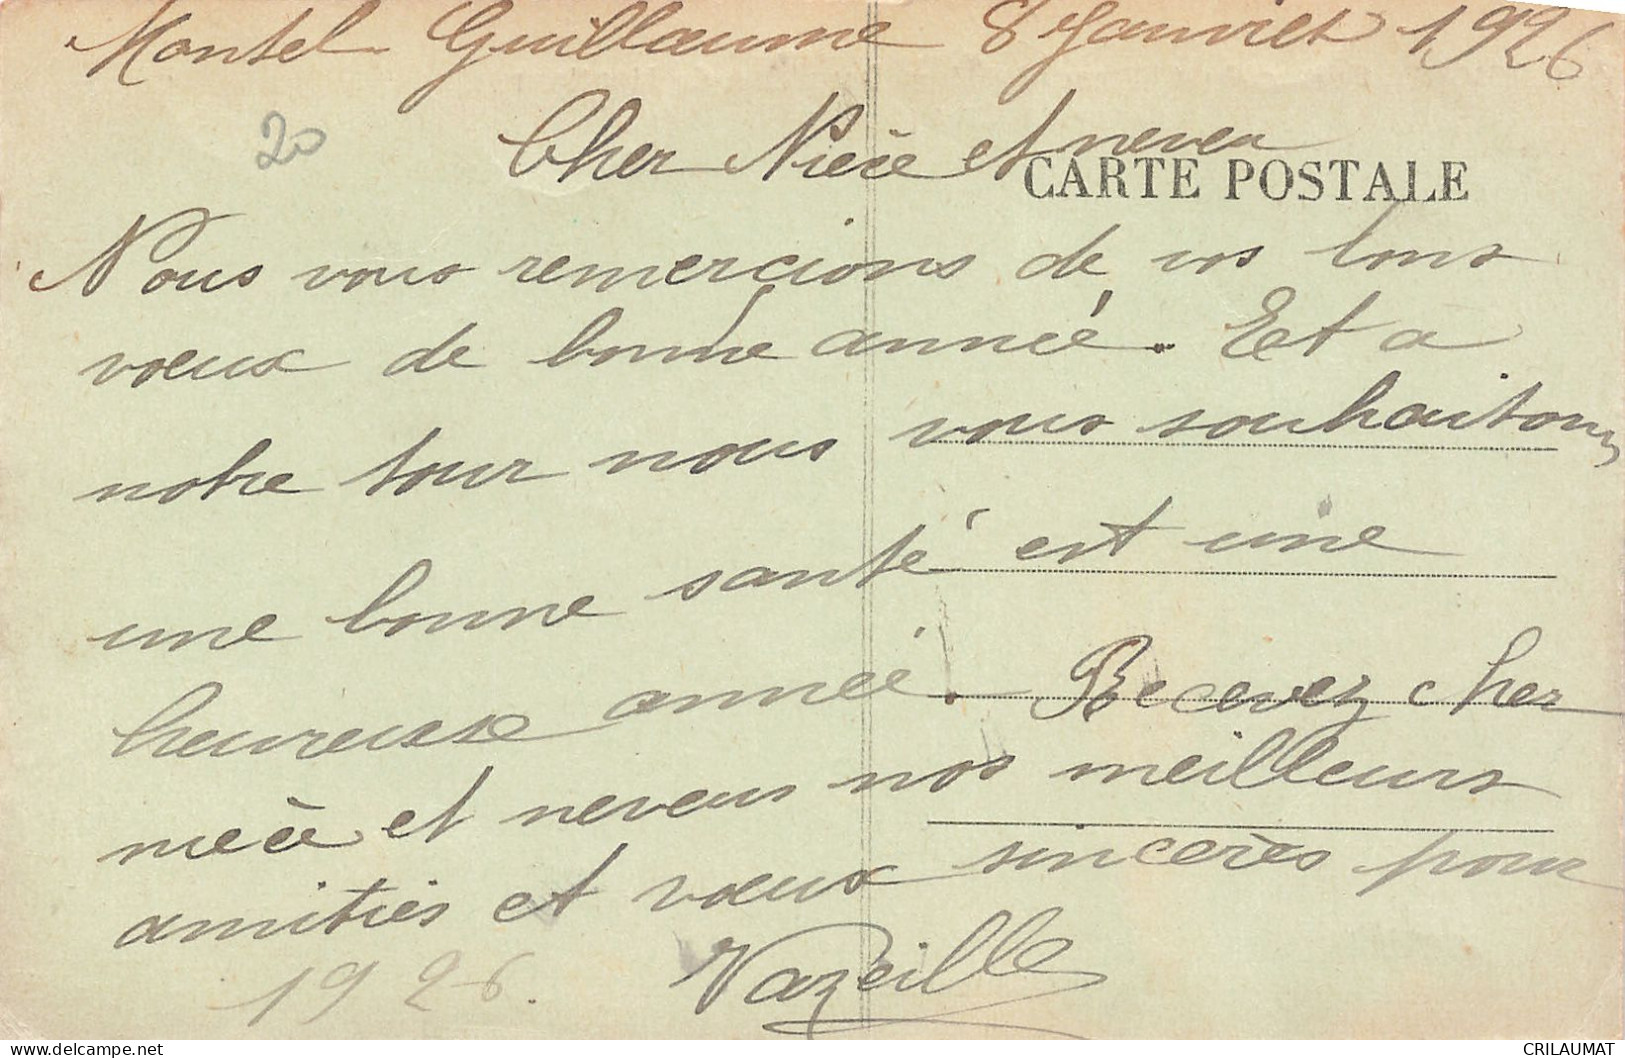 Montel Guillaume 8 Janvier 1926
20
Cher Nièce et neveu
CARTE POSTALE
Nous vous remercions de vos bons
voeux de bonne année. Et a
notre tour nous vous souhaitons
une bonne santé est une
heureusse année. Recevez cher
nièce et neveux nos meilleurs
amitiés et voeux sincères pour
1926. Vazeille
CRILAUMAT